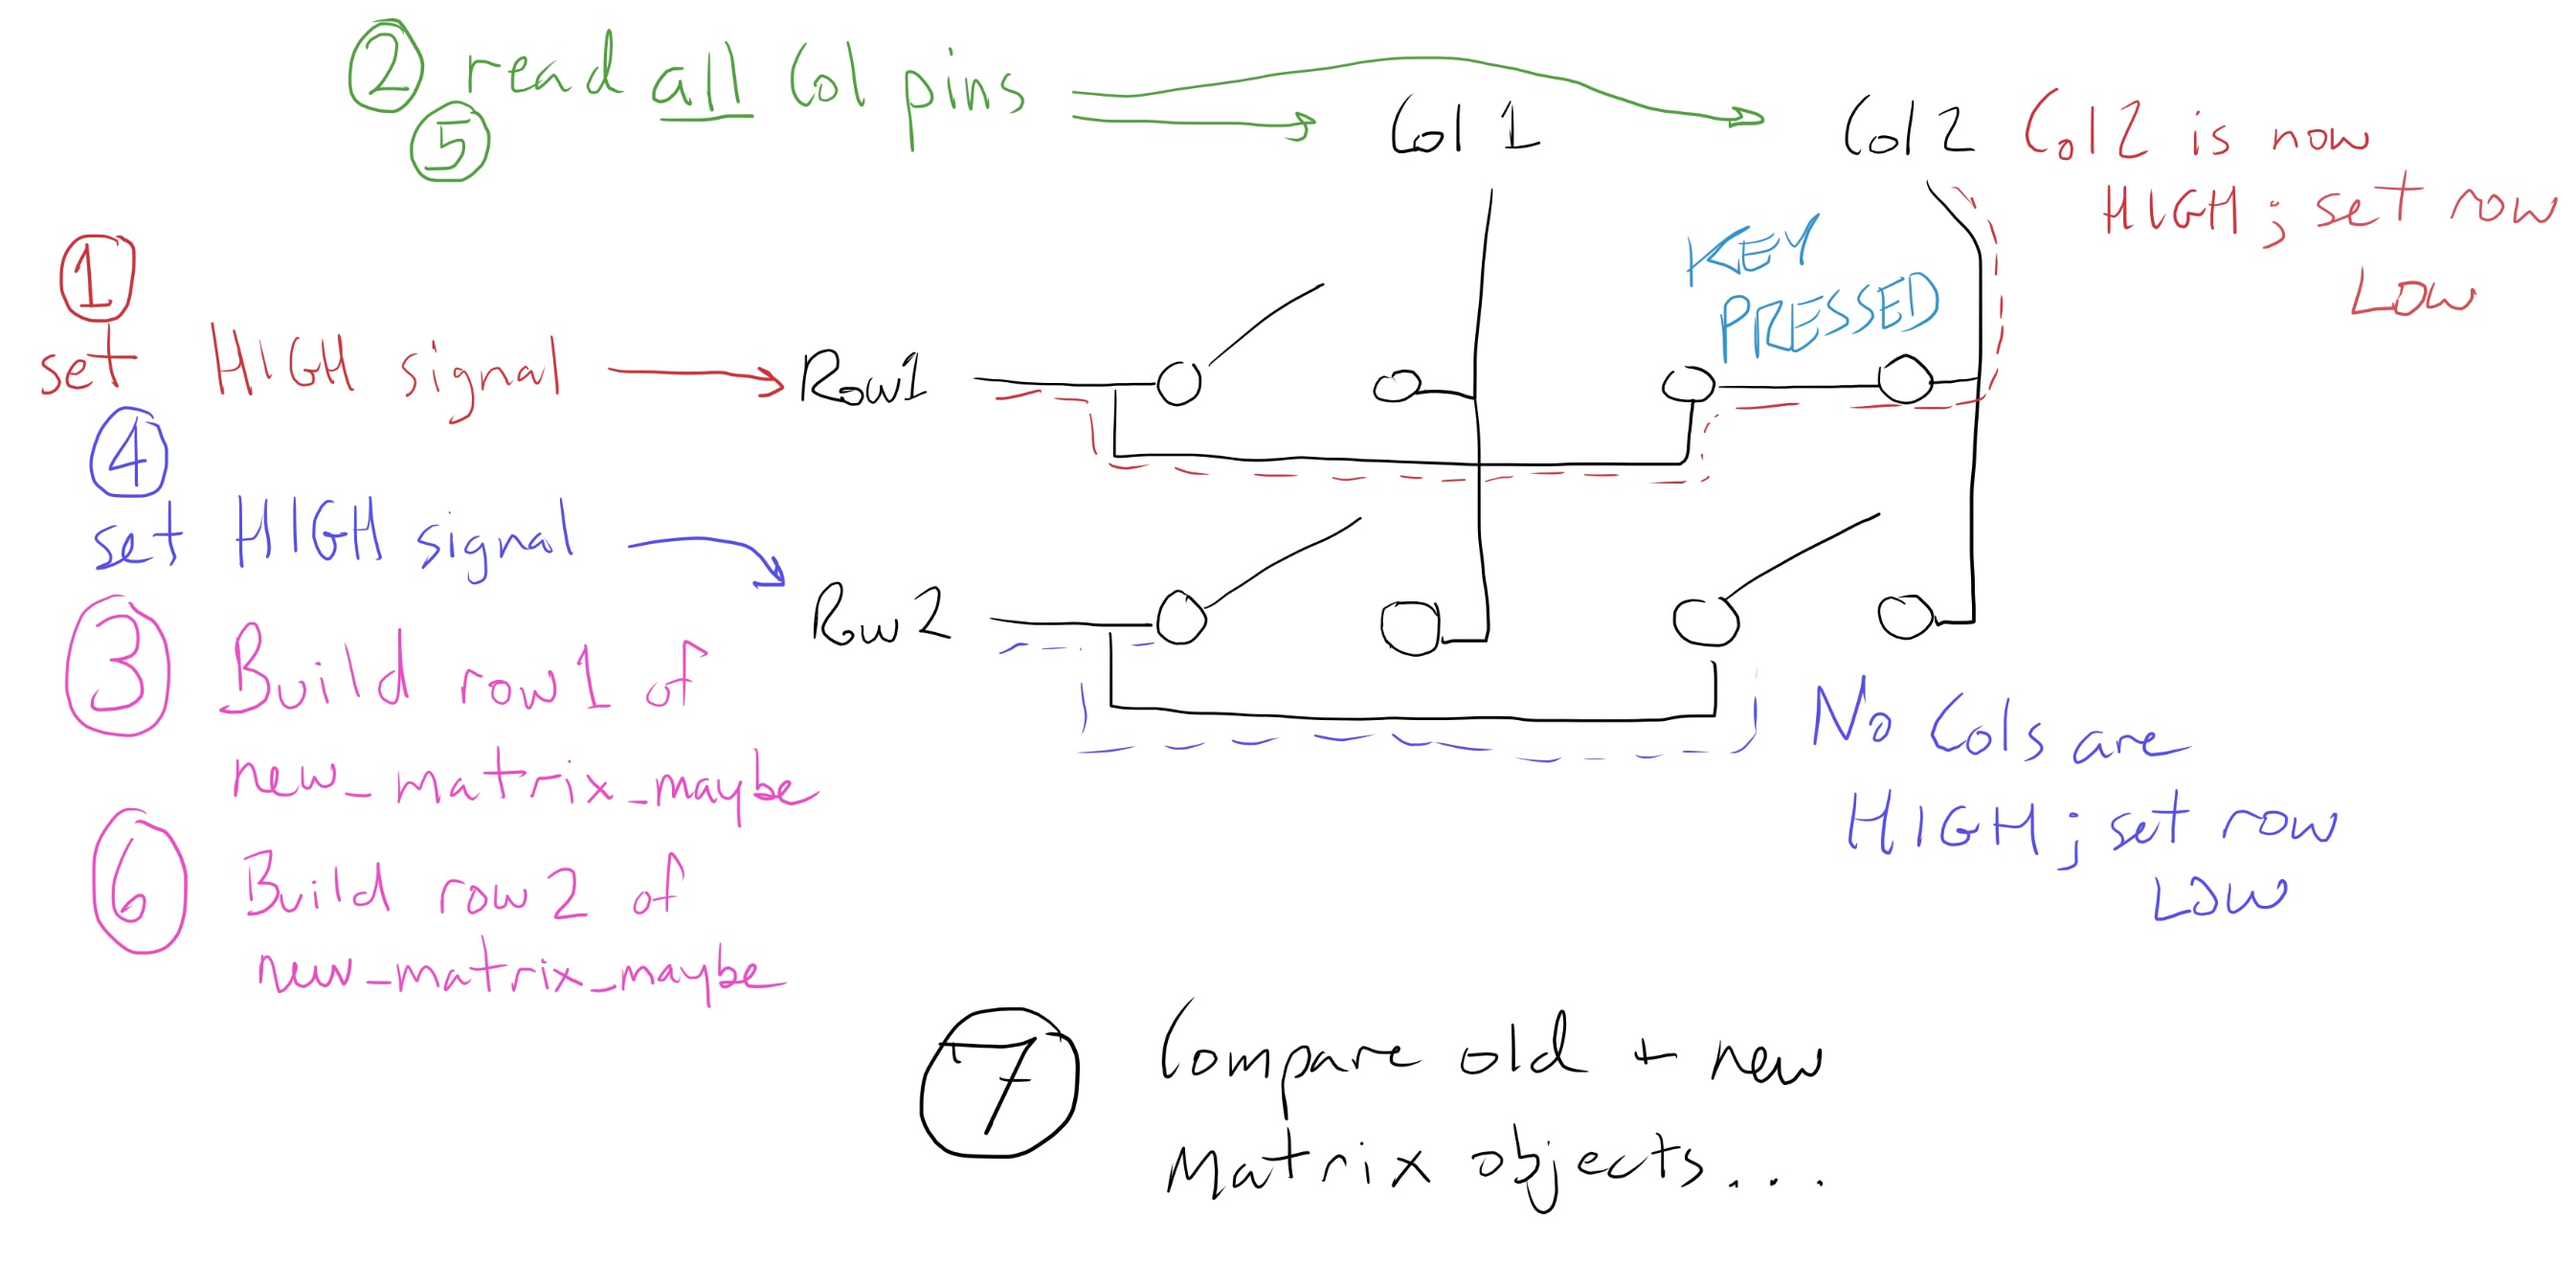 ② read all Col pins
⑤
Col 1
Col 2
Col 2 is now
HIGH; set row
LOW
KEY
PRESSED
①
set HIGH signal
Row1
④
set HIGH signal
Row 2
③ Build row 1 of
new_matrix_maybe
⑥ Build row 2 of
new_matrix_maybe
No Cols are
HIGH; set row
LOW
⑦ Compare old + new
Matrix objects...